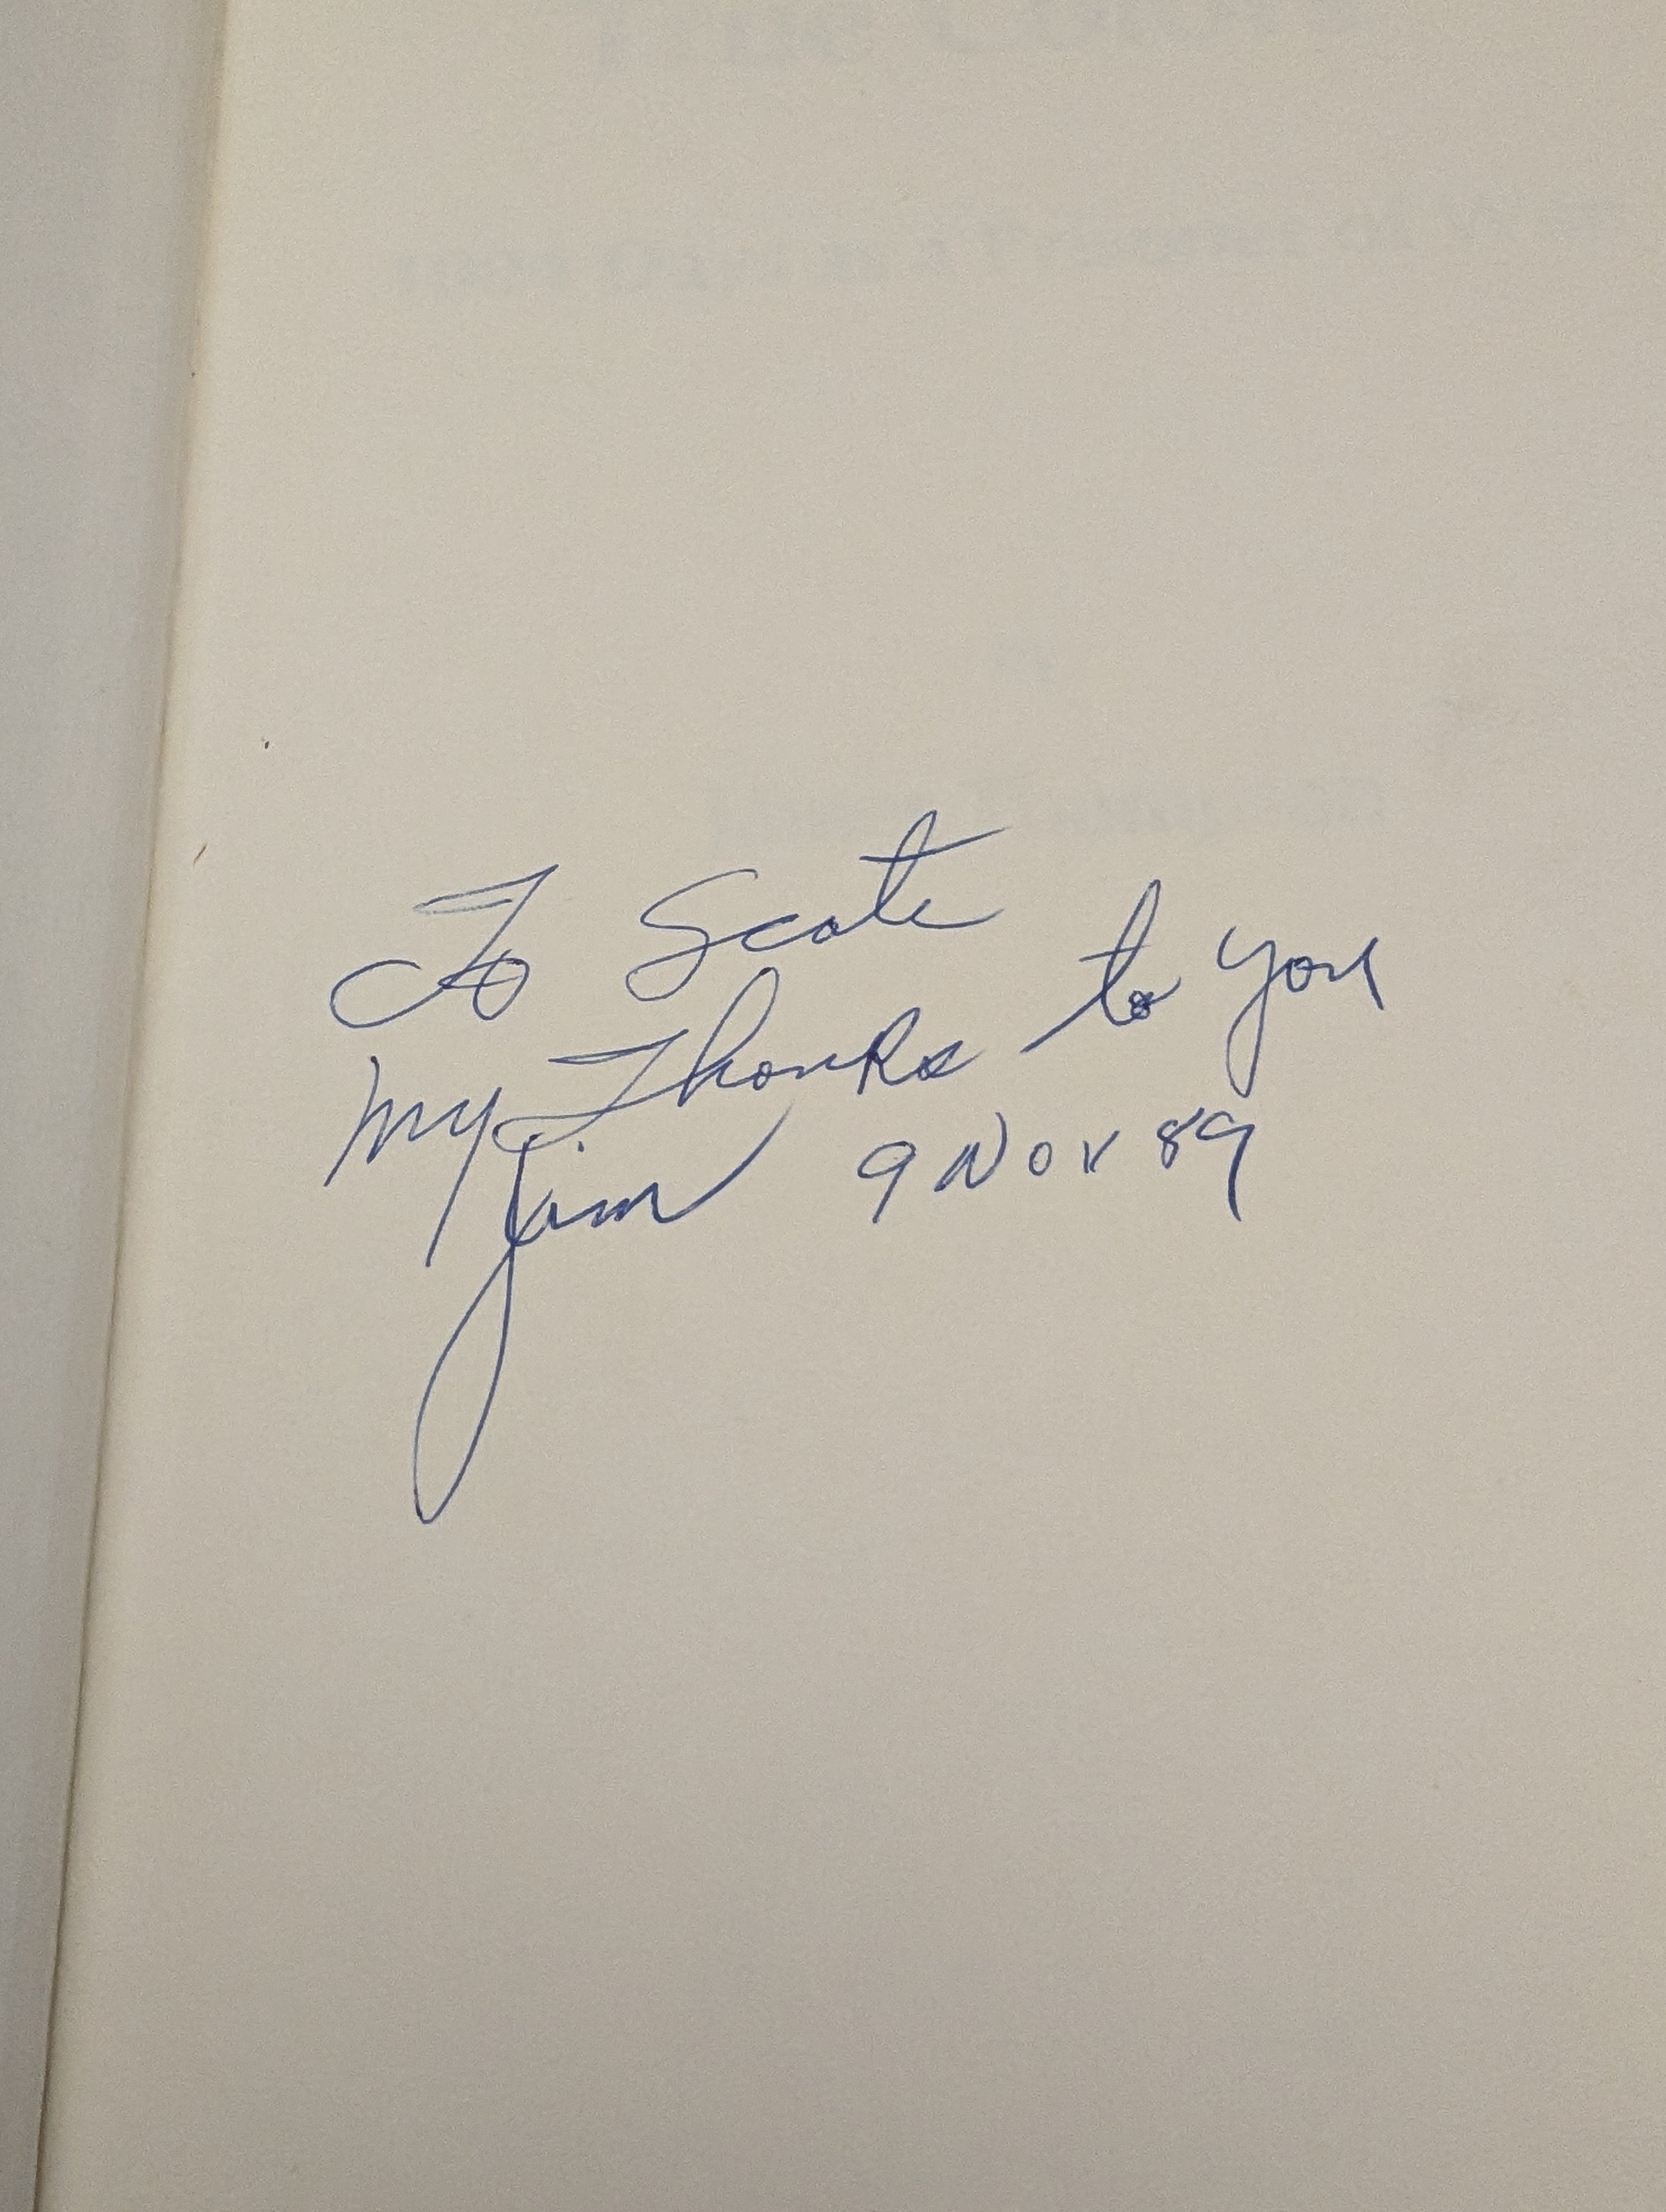 To Scott
My Thanks to you
Jim 9 Nov 89